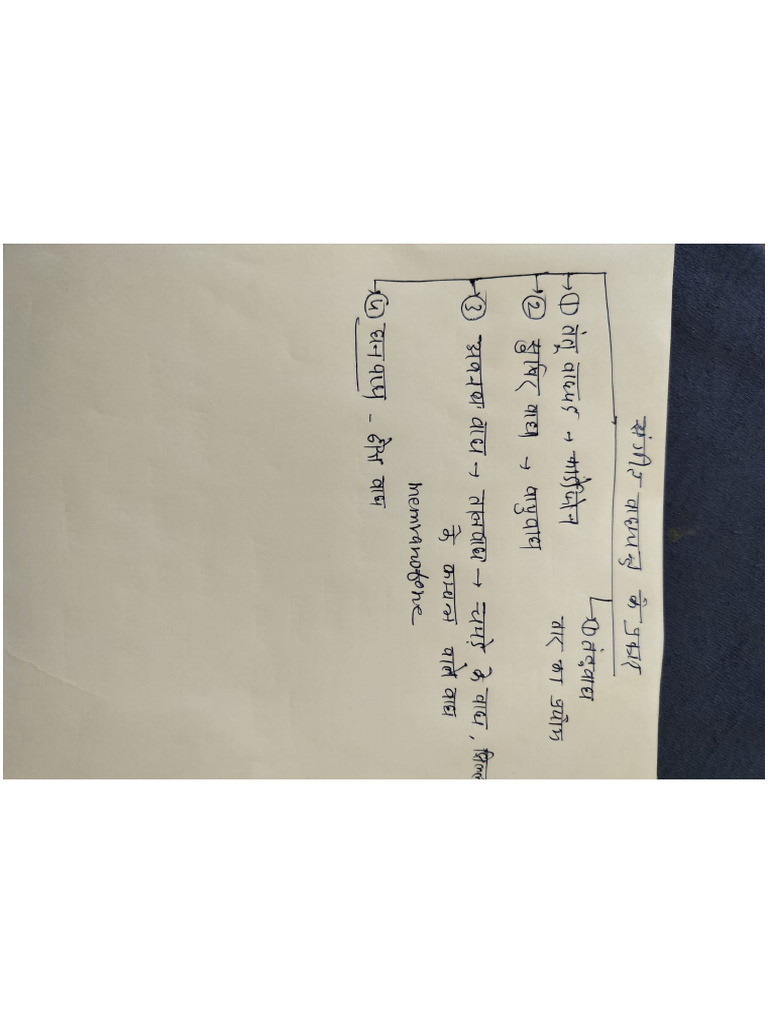 संगीत वाद्ययन्त्र के प्रकार
↳ ① तंतुवाद्य
① तंतु वाद्ययंत्र → कार्डोफोन तार का प्रयोग
② सुषिर वाद्य → वायुवाद्य
③ अवनद्ध वाद्य → तालवाद्य → चमड़े के वाद्य,
के कम्पन वाले वाद्य
memvranofone
④ घनवाद्य - ठोस वाद्य